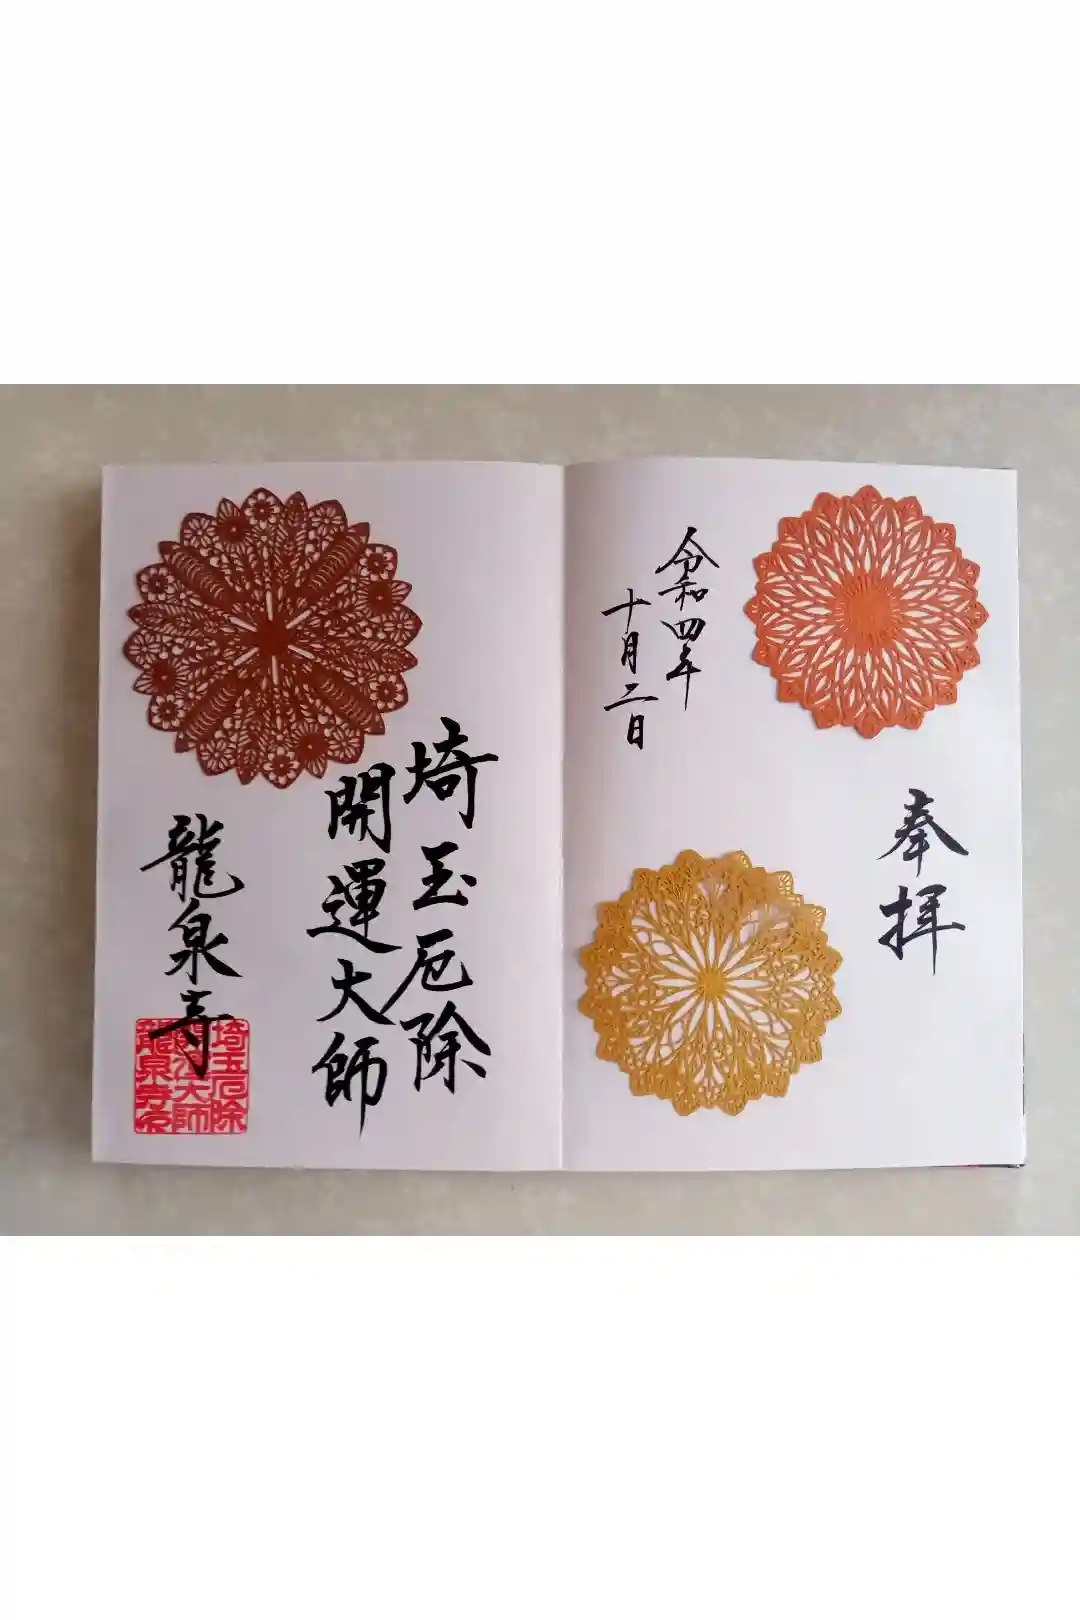 奉拝
令和四年
十月二日
埼玉厄除
開運大師
龍泉寺
埼玉厄除
開運大師
龍泉寺